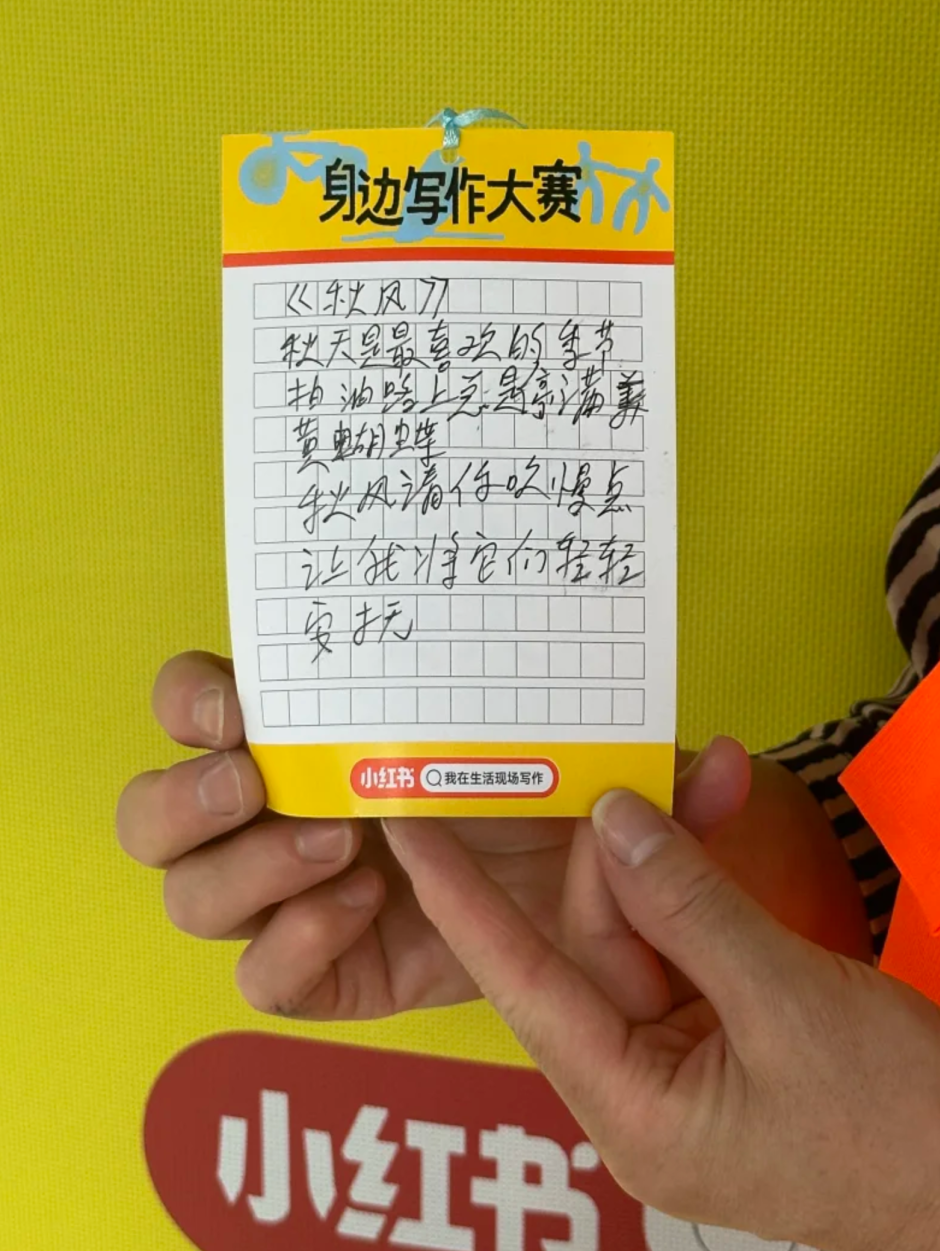 身边写作大赛
《秋风》
秋天是最喜欢的季节
柏油路上总是停满
黄蝴蝶
秋风请你吹慢点
让我将它们轻轻
安抚
小红书 我在生活现场写作
小红书